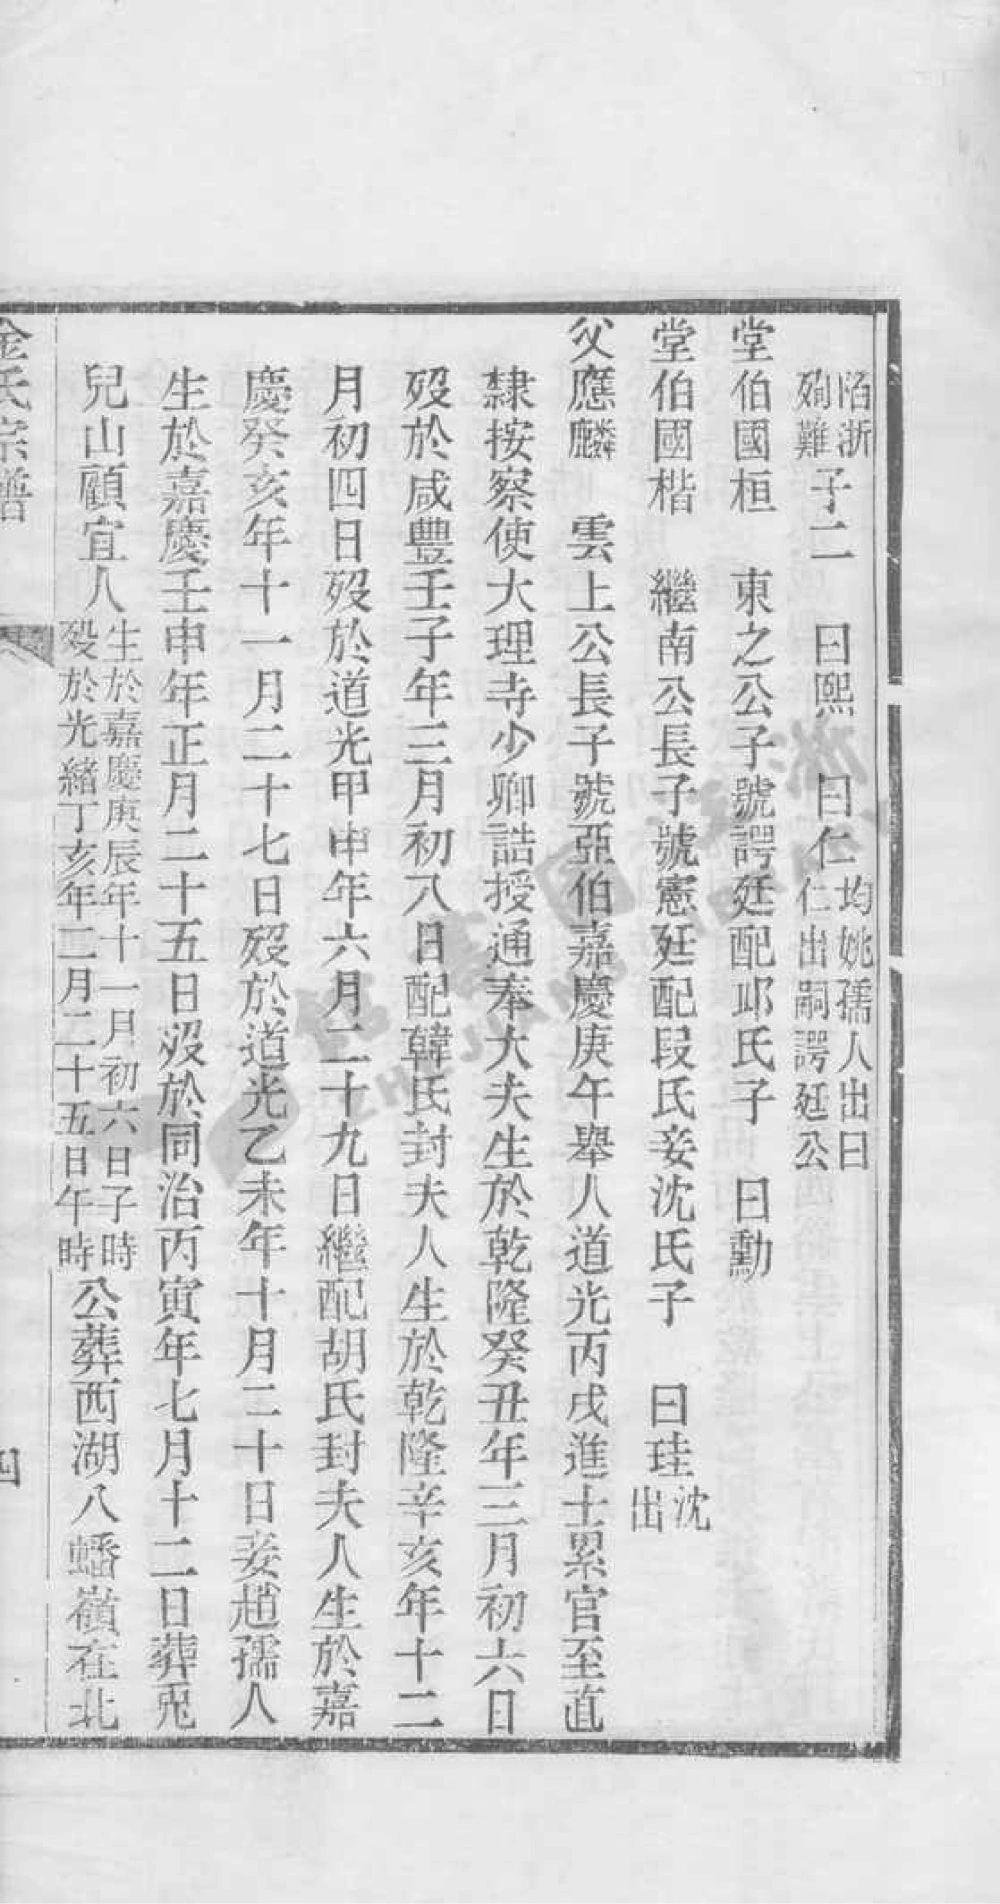 陷浙
殉難子二　曰熙　曰仁均姚孺人出曰
仁出嗣諤廷公
堂伯國桓　東之公子號諤廷配邛氏子　曰勳
堂伯國楷　繼南公長子號憲廷配段氏妾沈氏子　曰珪沈
出
父應麟　雲上公長子號亞伯嘉慶庚午舉人道光丙戌進士累官至直
隸按察使大理寺少卿誥授通奉大夫生於乾隆癸丑年三月初六日
歿於咸豐壬子年三月初八日配韓氏封夫人生於乾隆辛亥年十二
月初四日歿於道光甲申年六月二十九日繼配胡氏封夫人生於嘉
慶癸亥年十一月二十七日歿於道光乙未年十月二十日妾趙孺人
生於嘉慶壬申年正月二十五日歿於同治丙寅年七月十二日葬兎
兒山顧宜人生於嘉慶庚辰年十一月初六日子時
歿於光緒丁亥年二月二十五日午時公葬西湖八蟠嶺在北
金氏宗譜
四